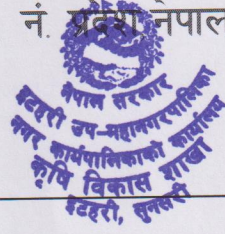 नं. प्रदेश नेपाल
नेपाल सरकार
इटहरी उप-महानगरपालिका
नगर कार्यपालिकाको कार्यालय
कृषि विकास शाखा
इटहरी, सुनसरी